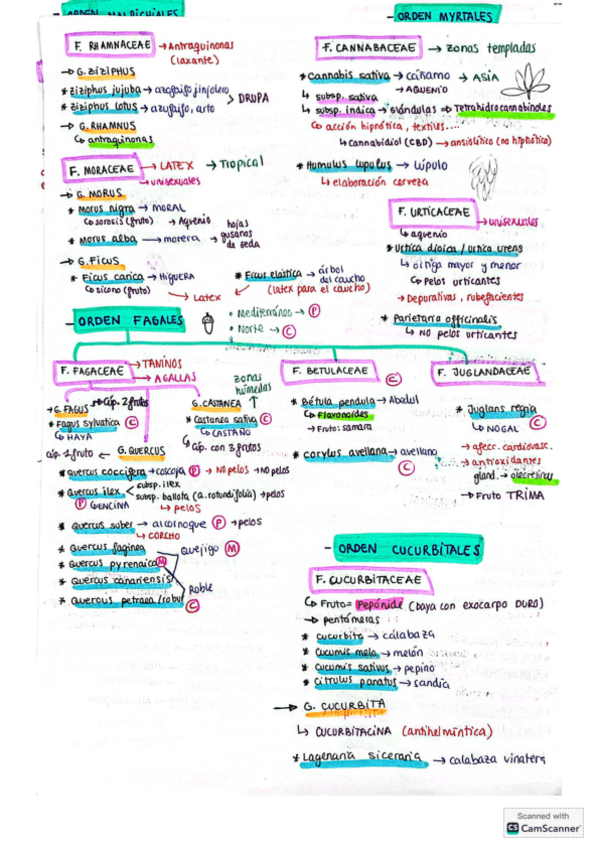 ORDEN MYRTALES
F. RHAMNACEAE → Antraquinonas
(laxante)
→ G. ZIZIPHUS
* Ziziphus jujuba → azofaifo, jinjolero
* Ziziphus lotus → azufaifo, arto
> DRUPA
→ G. RHAMNUS
↳ antraquinonas
F. MORACEAE → LATEX → Tropical
→ unisexuales
→ G. MORUS
* Morus nigra → MORAL
↳ sorosis (fruto) → Aquenio
* Morus alba → morera → hojas gusanos de seda
→ G. FICUS
* Ficus carica → HIGUERA
↳ sicono (fruto) → Latex
* Ficus elastica → árbol del caucho
(latex para el caucho)
F. CANNABACEAE → zonas templadas
* Cannabis sativa → cáñamo → ASIA
↳ subsp. sativa → AQUENIO
↳ subsp. indica → glándulas → Tetrahidrocannabinoles
↳ acción hipnótica, textiles...
↳ Cannabidiol (CBD) → ansiolítico (no hipnótico)
* Humulus lupulus → LÚPULO
↳ elaboración cerveza
F. URTICACEAE → unisexuales
↳ aquenio
* Urtica dioica / urtica urens
↳ ortiga mayor y menor
↳ Pelos urticantes
→ Depurativas, rubefacientes
* Parietaria officinalis
↳ NO pelos urticantes
- ORDEN FAGALES
• Mediterráneo → P
• Norte → C
F. FAGACEAE → TANINOS
→ AGALLAS
→ G. FAGUS → cúp. 2 frutos
* Fagus sylvatica C
↳ HAYA
zonas húmedas
G. CASTANEA ↑
* Castanea sativa C
↳ CASTAÑO
↳ cúp. con 3 frutos
cúp. 1 fruto ← G. QUERCUS
* Quercus coccifera → coscoja P → NO pelos → NO pelos
* Quercus ilex < subsp. ilex
subsp. ballota (a. rotundifolia) → pelos
P ENCINA → pelos
* Quercus suber → alcornoque P → pelos
↳ CORCHO
* Quercus faginea Quejigo M
* Quercus pyrenaica M
* Quercus canariensis
Roble
* Quercus petraea / robur C
F. BETULACEAE C
* Bétula pendula → Abedul
↳ Flavonoides
→ Fruto: sámara
* Corylus avellana → avellano
C
F. JUGLANDACEAE
* Juglans regia C
↳ NOGAL
→ afecc. cardiovasc.
→ antioxidantes
gland. → oleoresinas
→ Fruto TRIMA
- ORDEN CUCURBITALES
F. CUCURBITACEAE
↳ Fruto = Pepónide (baya con exocarpo DURO)
→ pentámeras
* Cucurbita → calabaza
* Cucumis melo → melón
* Cucumis sativus → pepino
* Citrulus lanatus → sandía
→ G. CUCURBITA
↳ CUCURBITACINA (antihelmíntica)
* Lagenaria siceraria → calabaza vinatera
Scanned with
CS CamScanner